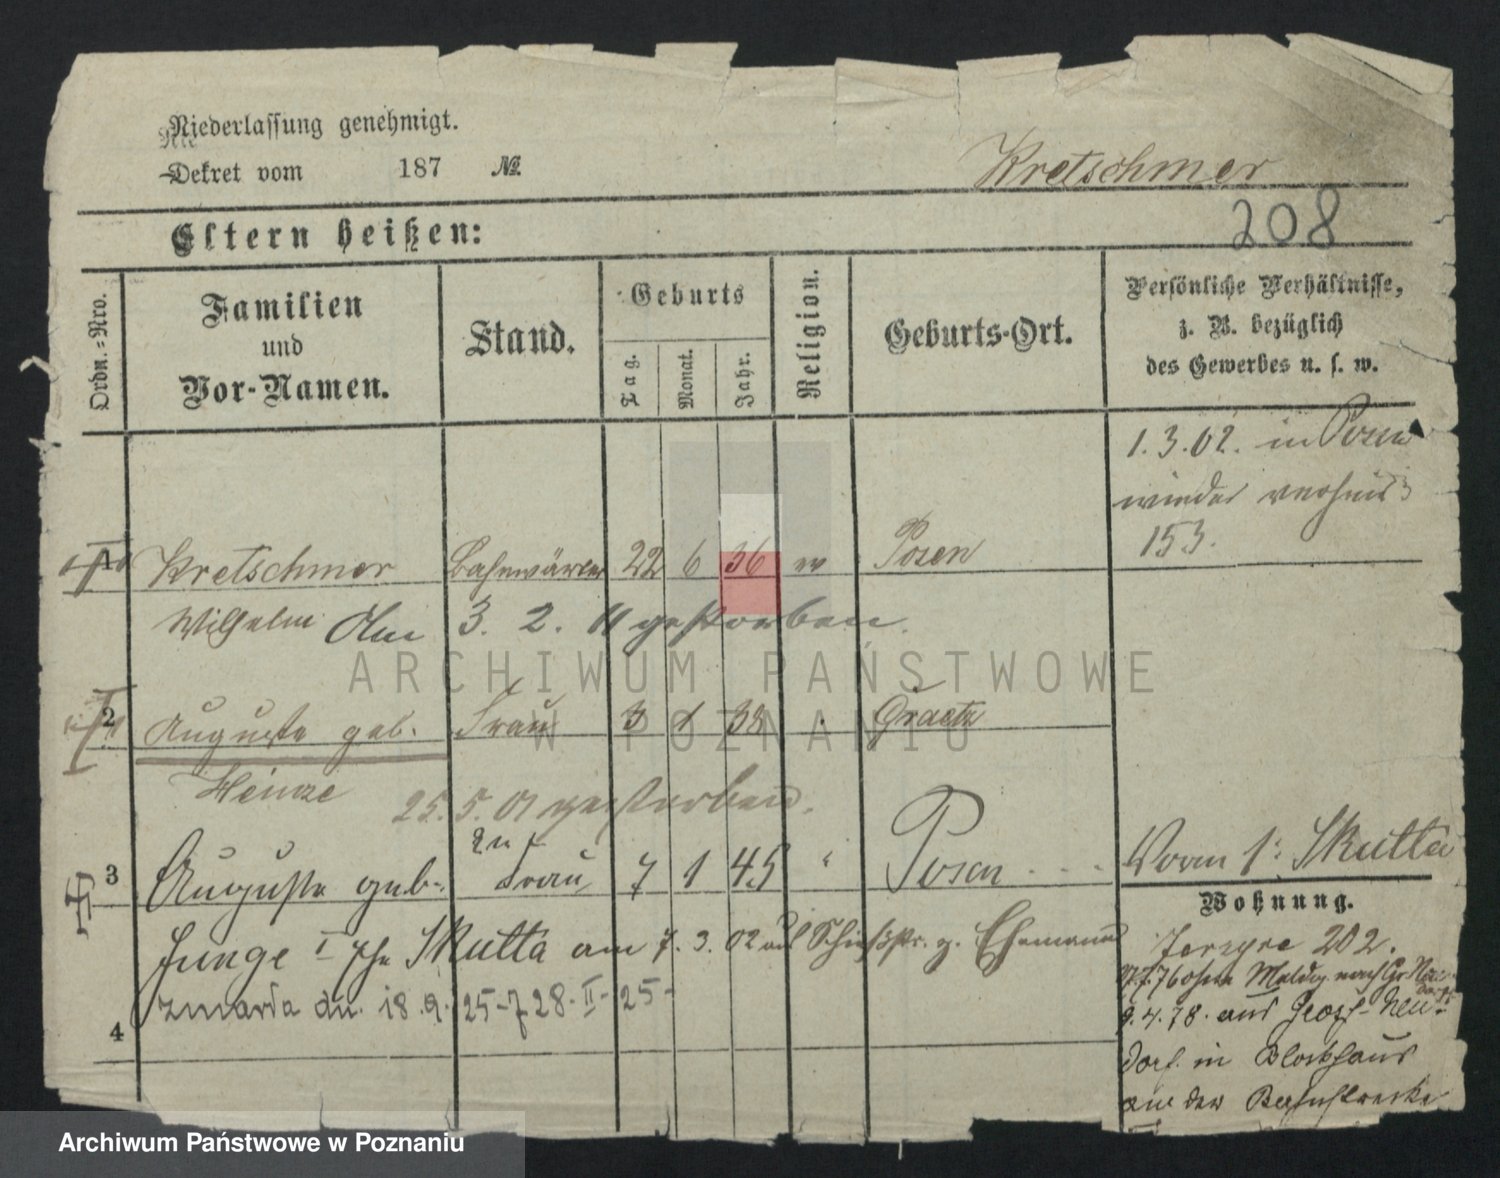 Niederlassung genehmigt.
Dekret vom 187 №
Kretschmer
208
Eltern heißen:
Ordn.=Nro.
Familien
und
Vor-Namen.
Stand.
Geburts
Tag.
Monat.
Jahr.
Religion.
Geburts-Ort.
Persönliche Verhältnisse,
z. B. bezüglich
des Gewerbes u. s. w.
1.3.02. in Posen
wieder
153.
1 Kretschmer Bahnwärter 22 6 36 ev Posen
Wilhelm Am 3. 2. 11 gestorben.
2 Auguste geb. Frau 3 1 38 Graetz
Heinze 25.5.01 gestorben.
3 Auguste geb. Frau 7 1 45 " Posen
Skutta
Junge Skutta am 7.3.02 Schießstr. z. Ehemann
Wohnung.
Jerzyce 202.
zmarła dn. 18.9.25-728-II-25-
4
9.4.78. aus Groß-Neu-
dorf in Blockhaus
an der
ARCHIWUM PAŃSTWOWE
W POZNANIU
Archiwum Państwowe w Poznaniu